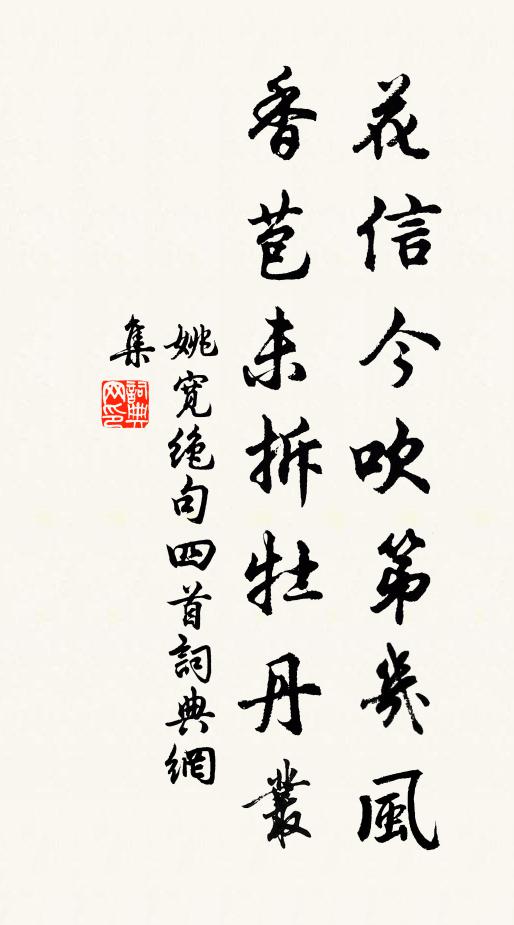 花信今吹第幾風
香苞未拆牡丹叢
姚寬絶句四首詞典網
集
詞典
网印